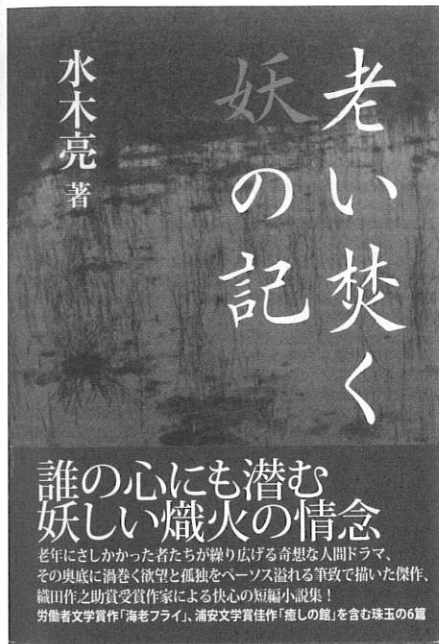 老い焚く
妖の記
水木亮 著
誰の心にも潜む
妖しい熾火の情念
老年にさしかかった者たちが繰り広げる奇想な人間ドラマ、
その奥底に渦巻く欲望と孤独をペーソス溢れる筆致で描いた傑作、
織田作之助賞受賞作家による快心の短編小説集!
労働者文学賞作「海老フライ」、浦安文学賞佳作「癒しの館」を含む珠玉の6篇